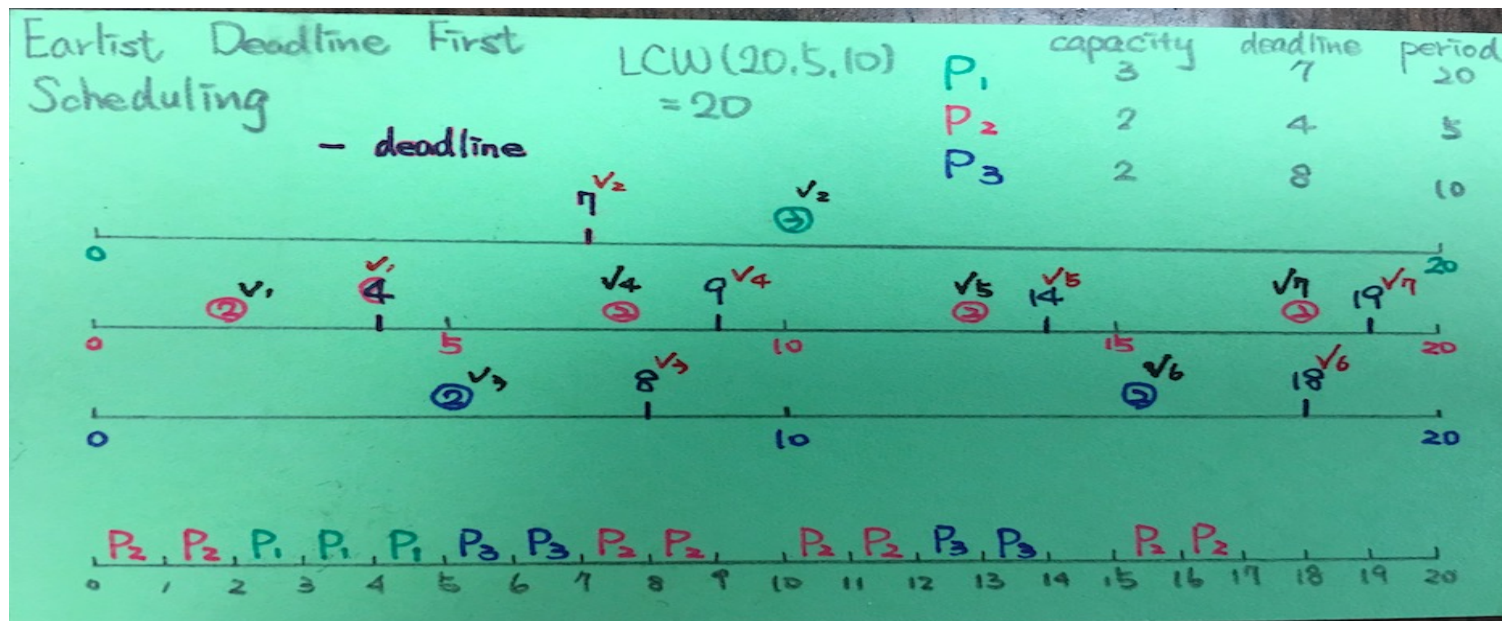 Earlist Deadline First
Scheduling
LCW(20.5.10)
=20
capacity deadline period
P1 3 7 20
P2 2 4 5
P3 2 8 10
- deadline
7 √2 ③ √2
0 20
② √1 4 √1 √4 ② 9 √4 √5 ② 14 √5 √7 ② 19 √7
0 5 10 15 20
② √3 8 √3 ② √6 18 √6
0 10 20
P2 P2 P1 P1 P1 P3 P3 P2 P2 P2 P2 P3 P3 P2 P2
0 1 2 3 4 5 6 7 8 9 10 11 12 13 14 15 16 17 18 19 20